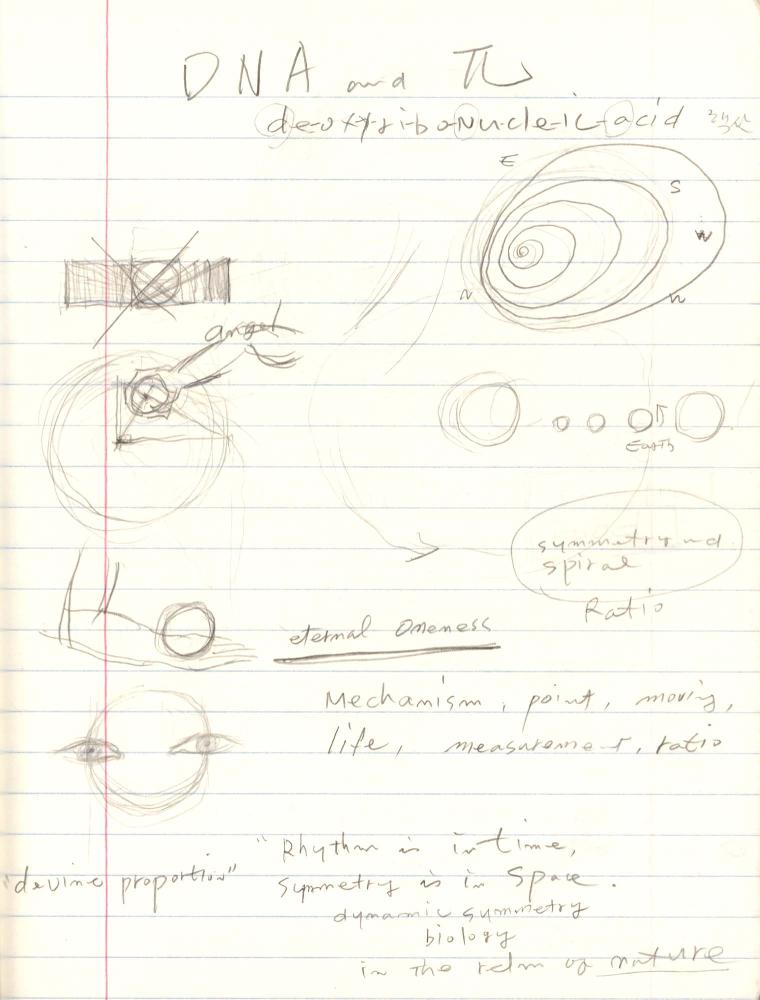 DNA and π
deoxy-ribo-Nucleic-acid
E
S
W
N
n
angel
Earth
symmetry and
spiral
Ratio
eternal Oneness
Mechanism, point, moving,
life, measurement, ratio
"Rhythm is in time,
"devine proportion"
symmetry is in Space.
dynamic symmetry
biology
in the relm of nature